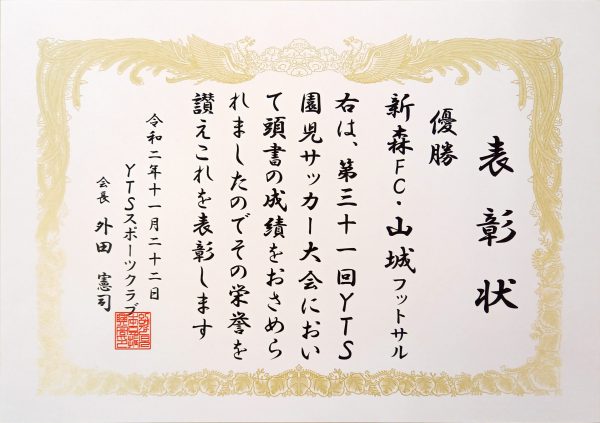 表彰状
優勝
新森FC・山城フットサル
右は、第三十一回YTS
園児サッカー大会におい
て頭書の成績をおさめら
れましたのでその栄誉を
讃えこれを表彰します
令和二年十一月二十二日
YTSスポーツクラブ
会長 外田 憲司